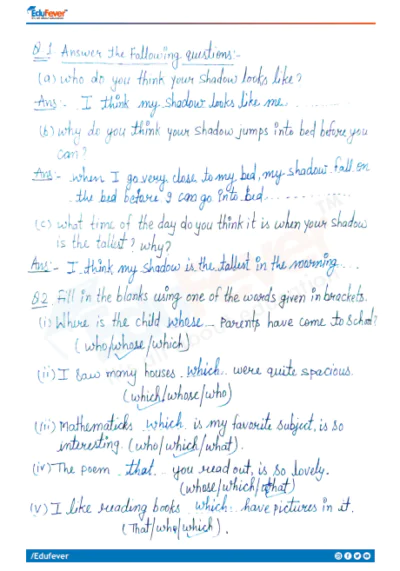 EduFever
Q.1 Answer the following questions:-
(a) who do you think your shadow looks like?
Ans:- I think my shadow looks like me...........
(b) why do you think your shadow jumps into bed before you
can?
Ans:- when I go very close to my bed, my shadow fall on
the bed before I can go into bed................
(c) what time of the day do you think it is when your shadow
is the tallest? why?
Ans:- I think my shadow is the tallest in the morning....
Q.2 Fill in the blanks using one of the words given in brackets.
(i) Where is the child whose.. Parents have come to School?
(who/whose/which)
(ii) I saw many houses which.. were quite spacious.
(which/whose/who)
(iii) Mathematicks which is my favorite subject, is so
interesting. (who/which/what).
(iv) The poem that... you read out, is so lovely.
(whose/which/that)
(v) I like reading books which... have pictures in it.
(That/who/which).
/Edufever